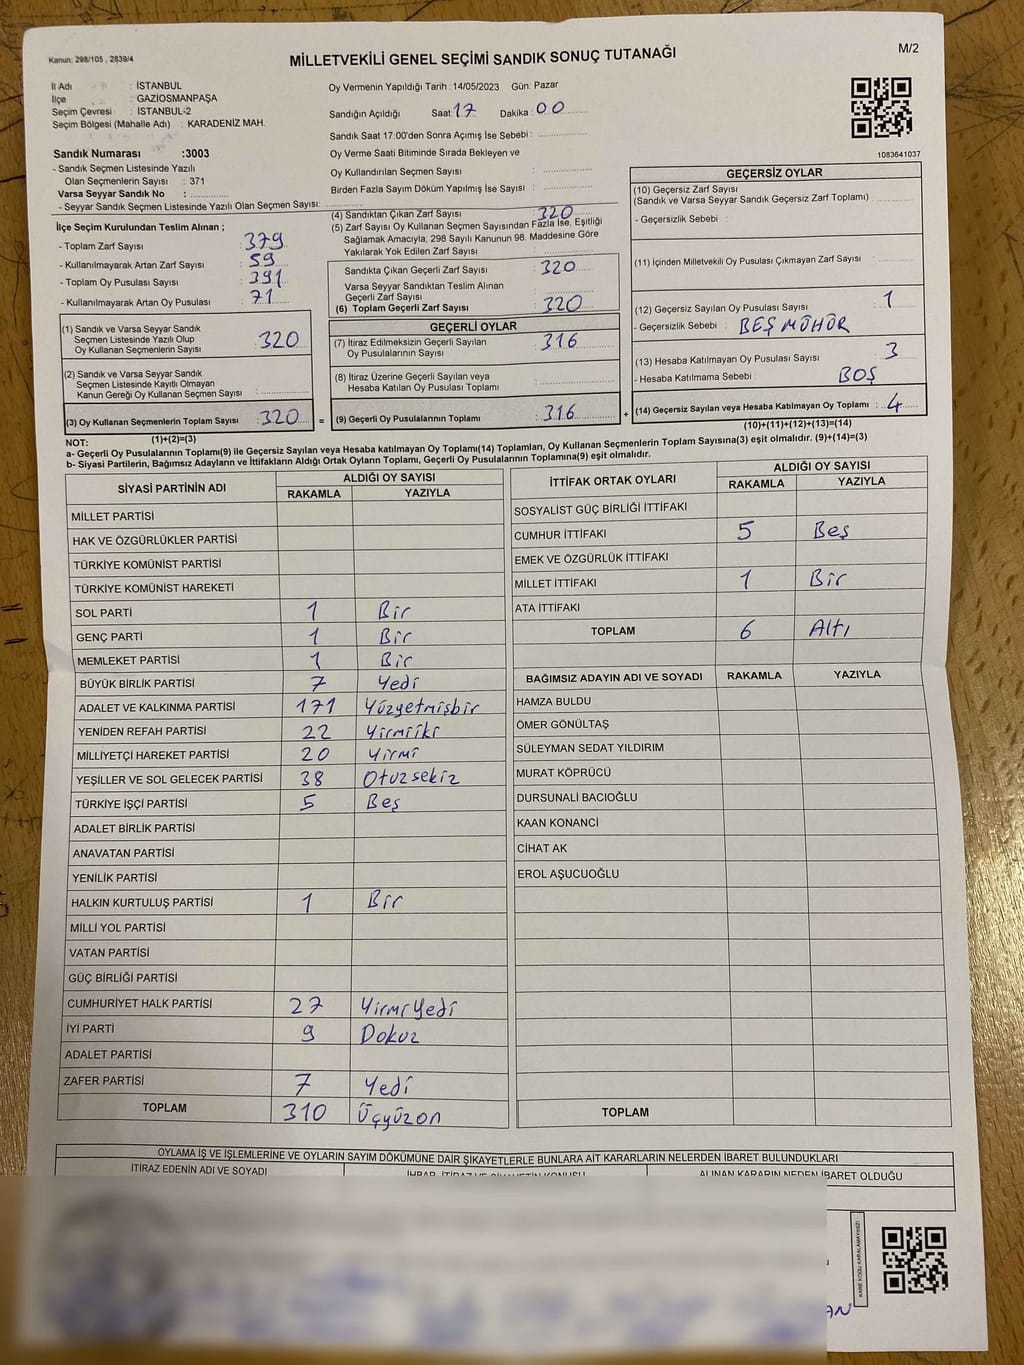 Kanun: 298/105 , 2839/4
MİLLETVEKİLİ GENEL SEÇİMİ SANDIK SONUÇ TUTANAĞI
M/2
İl Adı : İSTANBUL
İlçe : GAZİOSMANPAŞA
Seçim Çevresi : İSTANBUL-2
Seçim Bölgesi (Mahalle Adı) : KARADENİZ MAH.
Sandık Numarası :3003
- Sandık Seçmen Listesinde Yazılı
Olan Seçmenlerin Sayısı : 371
Varsa Seyyar Sandık No :
- Seyyar Sandık Seçmen Listesinde Yazılı Olan Seçmen Sayısı:
Oy Vermenin Yapıldığı Tarih :14/05/2023 Gün: Pazar
Sandığın Açıldığı Saat: 17 Dakika: 00
Sandık Saat 17:00'den Sonra Açımış İse Sebebi :
Oy Verme Saati Bitiminde Sırada Bekleyen ve
Oy Kullandırılan Seçmen Sayısı :
Birden Fazla Sayım Döküm Yapılmış İse Sayısı :
1083641037
İlçe Seçim Kurulundan Teslim Alınan ;
- Toplam Zarf Sayısı : 379
- Kullanılmayarak Artan Zarf Sayısı : 59
- Toplam Oy Pusulası Sayısı : 391
- Kullanılmayarak Artan Oy Pusulası : 71
(1) Sandık ve Varsa Seyyar Sandık
Seçmen Listesinde Yazılı Olup
Oy Kullanan Seçmenlerin Sayısı : 320
(2) Sandık ve Varsa Seyyar Sandık
Seçmen Listesinde Kayıtlı Olmayan
Kanun Gereği Oy Kullanan Seçmen Sayısı :
(3) Oy Kullanan Seçmenlerin Toplam Sayısı : 320 =
(1)+(2)=(3)
(4) Sandıktan Çıkan Zarf Sayısı : 320
(5) Zarf Sayısı Oy Kullanan Seçmen Sayısından Fazla İse, Eşitliği
Sağlamak Amacıyla, 298 Sayılı Kanunun 98. Maddesine Göre
Yakılarak Yok Edilen Zarf Sayısı :
Sandıkta Çıkan Geçerli Zarf Sayısı : 320
Varsa Seyyar Sandıktan Teslim Alınan
Geçerli Zarf Sayısı :
(6) Toplam Geçerli Zarf Sayısı : 320
GEÇERLİ OYLAR
(7) İtiraz Edilmeksizin Geçerli Sayılan
Oy Pusulalarının Sayısı : 316
(8) İtiraz Üzerine Geçerli Sayılan veya
Hesaba Katılan Oy Pusulası Toplamı :
(9) Geçerli Oy Pusulalarının Toplamı : 316 +
GEÇERSİZ OYLAR
(10) Geçersiz Zarf Sayısı
(Sandık ve Varsa Seyyar Sandık Geçersiz Zarf Toplamı) :
- Geçersizlik Sebebi :
(11) İçinden Milletvekili Oy Pusulası Çıkmayan Zarf Sayısı :
(12) Geçersiz Sayılan Oy Pusulası Sayısı : 1
- Geçersizlik Sebebi : BEŞ MÜHÜR
(13) Hesaba Katılmayan Oy Pusulası Sayısı : 3
- Hesaba Katılmama Sebebi : BOŞ
(14) Geçersiz Sayılan veya Hesaba Katılmayan Oy Toplamı : 4
(10)+(11)+(12)+(13)=(14)
NOT:
a- Geçerli Oy Pusulalarının Toplamı(9) ile Geçersiz Sayılan veya Hesaba katılmayan Oy Toplamı(14) Toplamları, Oy Kullanan Seçmenlerin Toplam Sayısına(3) eşit olmalıdır. (9)+(14)=(3)
b- Siyasi Partilerin, Bağımsız Adayların ve İttifakların Aldığı Ortak Oyların Toplamı, Geçerli Oy Pusulalarının Toplamına(9) eşit olmalıdır.
SİYASİ PARTİNİN ADI ALDIĞI OY SAYISI
RAKAMLA YAZIYLA
MİLLET PARTİSİ
HAK VE ÖZGÜRLÜKLER PARTİSİ
TÜRKİYE KOMÜNİST PARTİSİ
TÜRKİYE KOMÜNİST HAREKETİ
SOL PARTİ 1 Bir
GENÇ PARTİ 1 Bir
MEMLEKET PARTİSİ 1 Bir
BÜYÜK BİRLİK PARTİSİ 7 Yedi
ADALET VE KALKINMA PARTİSİ 171 Yüzyetmişbir
YENİDEN REFAH PARTİSİ 22 Yirmiiki
MİLLİYETÇİ HAREKET PARTİSİ 20 Yirmi
YEŞİLLER VE SOL GELECEK PARTİSİ 38 Otuzsekiz
TÜRKİYE İŞÇİ PARTİSİ 5 Beş
ADALET BİRLİK PARTİSİ
ANAVATAN PARTİSİ
YENİLİK PARTİSİ
HALKIN KURTULUŞ PARTİSİ 1 Bir
MİLLİ YOL PARTİSİ
VATAN PARTİSİ
GÜÇ BİRLİĞİ PARTİSİ
CUMHURİYET HALK PARTİSİ 27 YirmiYedi
İYİ PARTİ 9 Dokuz
ADALET PARTİSİ
ZAFER PARTİSİ 7 Yedi
TOPLAM 310 Üçyüzon
İTTİFAK ORTAK OYLARI ALDIĞI OY SAYISI
RAKAMLA YAZIYLA
SOSYALİST GÜÇ BİRLİĞİ İTTİFAKI
CUMHUR İTTİFAKI 5 Beş
EMEK VE ÖZGÜRLÜK İTTİFAKI
MİLLET İTTİFAKI 1 Bir
ATA İTTİFAKI
TOPLAM 6 Altı
BAĞIMSIZ ADAYIN ADI VE SOYADI RAKAMLA YAZIYLA
HAMZA BULDU
ÖMER GÖNÜLTAŞ
SÜLEYMAN SEDAT YILDIRIM
MURAT KÖPRÜCÜ
DURSUNALİ BACIOĞLU
KAAN KONANCİ
CİHAT AK
EROL AŞUCUOĞLU
TOPLAM
OYLAMA İŞ VE İŞLEMLERİNE VE OYLARIN SAYIM DÖKÜMÜNE DAİR ŞİKAYETLERLE BUNLARA AİT KARARLARIN NELERDEN İBARET BULUNDUKLARI
İTİRAZ EDENİN ADI VE SOYADI İHBAR, İTİRAZ VE ŞİKAYETİN KONUSU ALINAN KARARIN NEDEN İBARET OLDUĞU
KARE KODU KARALAMAYINIZ!